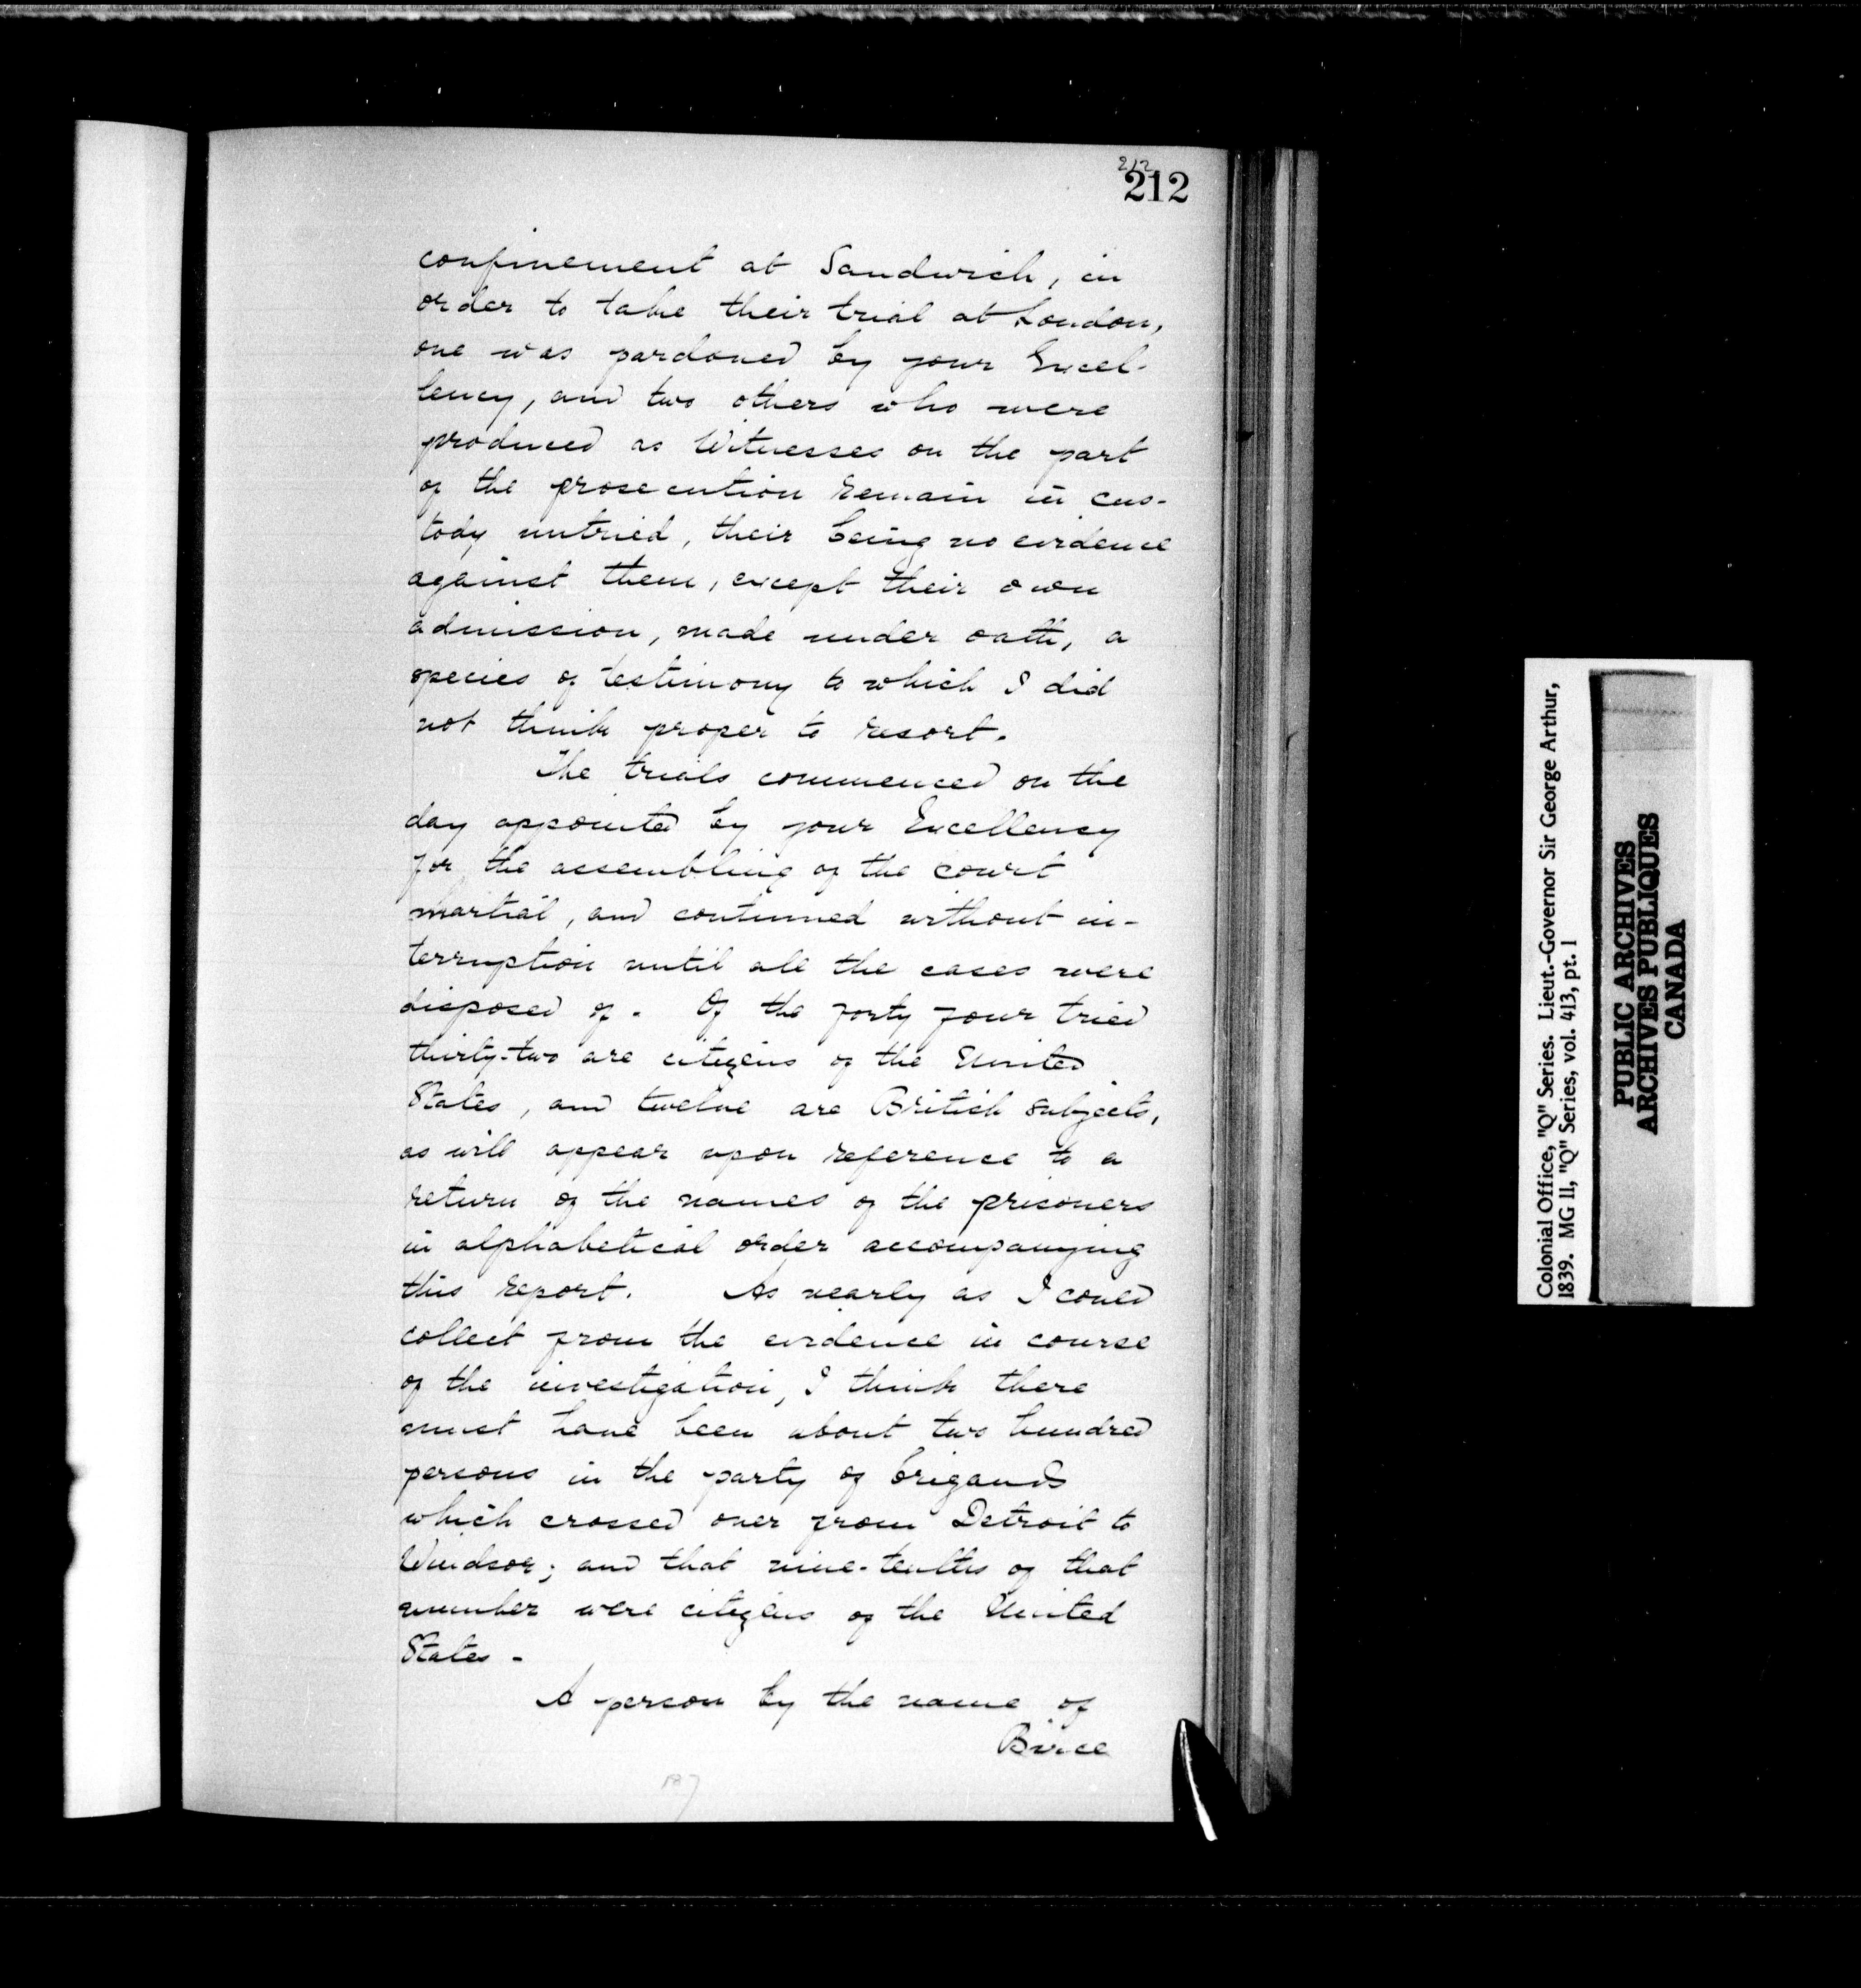 212
212
confinement at Sandwich, in
order to take their trial at London,
one was pardoned by your Excel-
lency, and two others who were
produced as Witnesses on the part
of the prosecution remain in cus-
tody untried, their being no evidence
against them, except their own
admission, made under oath, a
species of testimony to which I did
not think proper to resort.
The trials commenced on the
day appointed by your Excellency
for the assembling of the court
martial, and continued without in-
terruption until all the cases were
disposed of. Of the forty four tried
thirty-two are citizens of the United
States, and twelve are British subjects,
as will appear upon reference to a
return of the names of the prisoners
in alphabetical order accompanying
this report. As nearly as I could
collect from the evidence in course
of the investigation, I think there
must have been about two hundred
persons in the party of brigands
which crossed over from Detroit to
Windsor; and that nine-tenths of that
number were citizens of the United
States -
A person by the name of
Bierce
187
Colonial Office, "Q" Series. Lieut.-Governor Sir George Arthur,
1839. MG 11, "Q" Series, vol. 413, pt. 1
PUBLIC ARCHIVES
ARCHIVES PUBLIQUES
CANADA